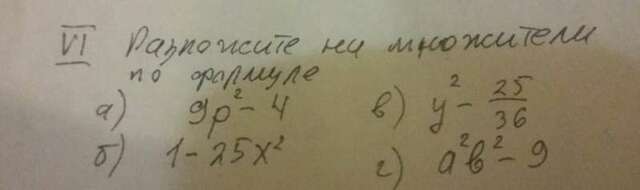 VI Разложите на множители
по формуле
а) 9p² - 4 в) y² - 25/36
б) 1 - 25x² г) a²b² - 9